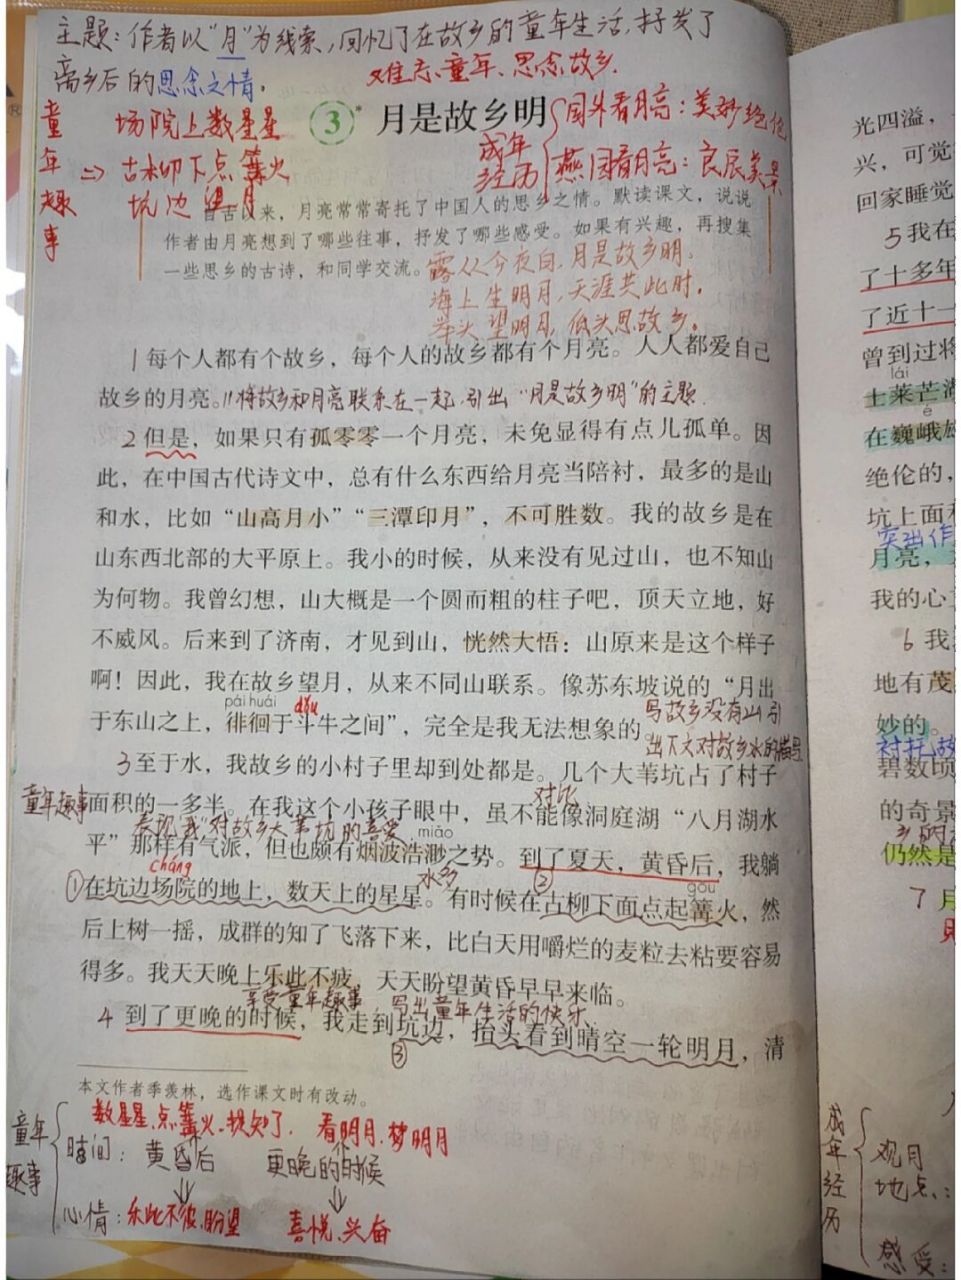 主题：作者以"月"为线索，回忆了在故乡的童年生活，抒发了
离乡后的思念之情。
难忘童年、思念故乡。
童年趣事
场院上数星星
古柳下点篝火
坑边望月
3* 月是故乡明
成年经历
国外看月亮：美妙绝伦
燕园看月亮：良辰美景
自古以来，月亮常常寄托了中国人的思乡之情。默读课文，说说
作者由月亮想到了哪些往事，抒发了哪些感受。如果有兴趣，再搜集
一些思乡的古诗，和同学交流。
露从今夜白，月是故乡明。
海上生明月，天涯共此时。
举头望明月，低头思故乡。
1每个人都有个故乡，每个人的故乡都有个月亮。人人都爱自己
故乡的月亮。//将故乡和月亮联系在一起，引出"月是故乡明"的主题
2但是，如果只有孤零零一个月亮，未免显得有点儿孤单。因
此，在中国古代诗文中，总有什么东西给月亮当陪衬，最多的是山
和水，比如"山高月小""三潭印月"，不可胜数。我的故乡是在
山东西北部的大平原上。我小的时候，从来没有见过山，也不知山
为何物。我曾幻想，山大概是一个圆而粗的柱子吧，顶天立地，好
不威风。后来到了济南，才见到山，恍然大悟：山原来是这个样子
啊！因此，我在故乡望月，从来不同山联系。像苏东坡说的"月出
pái huái dǒu
于东山之上，徘徊于斗牛之间"，完全是我无法想象的
写故乡没有山，引
出下文对故乡水的描写
3至于水，我故乡的小村子里却到处都是。几个大苇坑占了村子
童年趣事
面积的一多半。在我这个小孩子眼中，虽不能像洞庭湖"八月湖水
对比
表现"我"对故乡大苇坑的喜爱
miǎo
平"那样有气派，但也颇有烟波浩渺之势。到了夏天，黄昏后，我躺
cháng
水多
①在坑边场院的地上，数天上的星星。有时候在古柳下面点起篝火，然
②
gōu
后上树一摇，成群的知了飞落下来，比白天用嚼烂的麦粒去粘要容易
得多。我天天晚上乐此不疲，天天盼望黄昏早早来临。
享受童年趣事
写出童年生活的快乐
4到了更晚的时候，我走到坑边，抬头看到晴空一轮明月，清
③
本文作者季羡林，选作课文时有改动。
童年趣事
数星星、点篝火、捉知了
看明月、梦明月
时间：黄昏后 更晚的时候
心情：乐此不疲、盼望 喜悦、兴奋
光四溢，
兴，可觉
回家睡觉
5我在
了十多年
了近十一
曾到过将
lái
士莱芒湖
é
在巍峨雄
绝伦的，
坑上面和
突出作
月亮，
我的心
6我
地有茂
妙的。
衬托故
碧数顷
的奇景
仍然是
7月
成年经历
观月
地点：
感受：